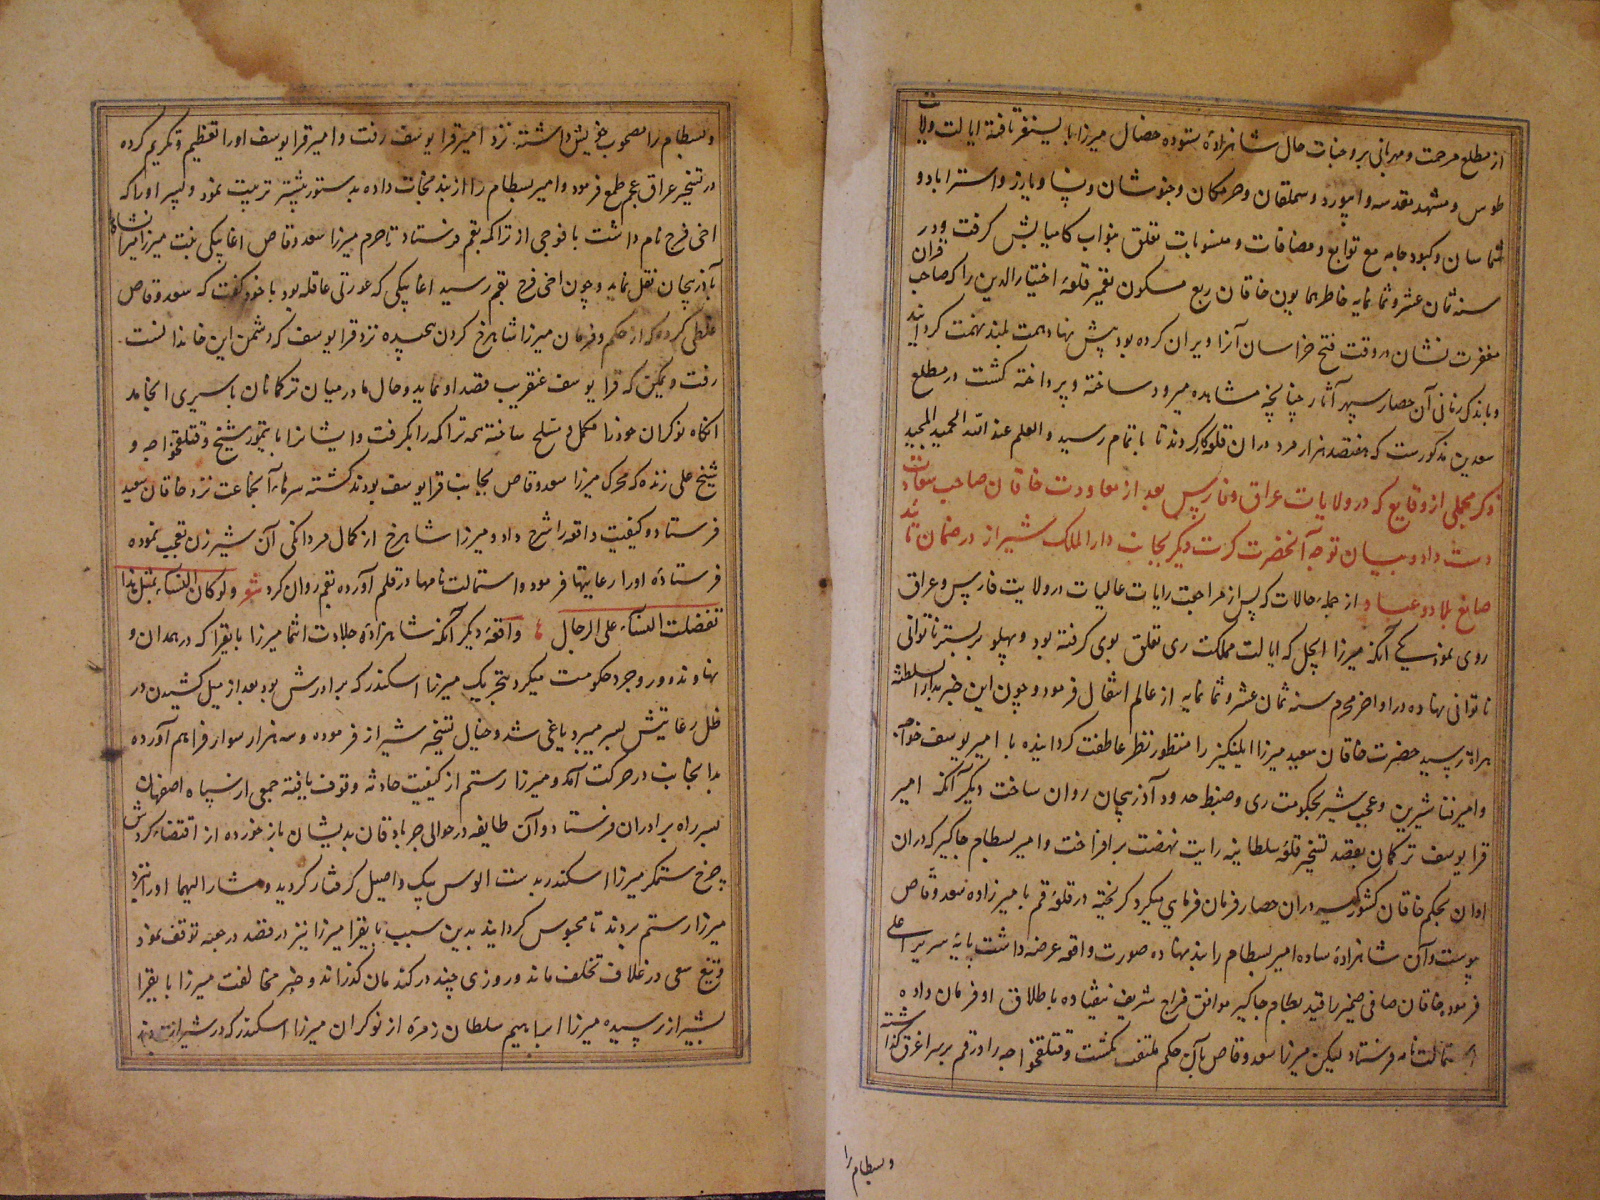 از مطلع مرحمت و مهربانی بر وجنات حال شاهزادهٔ ستوده خصال میرزا بایسنغر تافته ایالت ولایت
طوس و مشهد مقدسه و ابیورد و سملقان و جرمکان و خبوشان و نسا و یازر و استراباد و
شماسان و کبود جامه مع توابع و مضافات و منسوبات تعلق بنواب کامیابش گرفت و در
سنه ثمان عشر و ثمانمایه خاطر همایون خاقان ربع مسکون تعمیر قلعهٔ اختیارالدین را که صاحب قران
مغفرت نشان در وقت فتح خراسان آنرا ویران کرده بود پیش نهاد همت بلند نهمت گردانید
و باندک زمانی آن حصار سپهر آثار چنانچه مشاهده میرود ساخته و پرداخته گشت در مطلع
سعدین مذکورست که هفتصد هزار مرد در ان قلعه کار کردند تا باتمام رسید والعلم عند الله الحمید المجید
ذکر مجملی از وقایع که در ولایات عراق و فارس بعد از معاودت خاقان صاحب سعادت
دست داد و بیان توجه آنحضرت کرت دیگر بجانب دارالملک شیراز در ضمان تائید
صانع بلاد و عباد از جمله حالات که پس از مراجعت رایات عالیات در ولایت فارس و عراق
روی نمود یکی آنکه میرزا ایجل که ایالت مملکت ری تعلق بوی گرفته بود پهلو بر بستر ناتوانی
ناتوانی نهاده در اواخر محرم سنه ثمان عشر و ثمانمایه از عالم انتقال فرمود و چون این خبر بدار السلطنه
هراة رسید حضرت خاقان سعید میرزا ایلنکیز را منظور نظر عاطفت گردانیده با امیر یوسف خواجه
و امیر نتاشیرین و عجب شیر بحکومت ری و ضبط حدود آذربیجان روان ساخت دیگر آنکه امیر
قرا یوسف ترکمان بقصد تسخیر قلعه سلطانیه رایت نهضت برافراخت و امیر بسطام جاگیر که در ان
اوان بحکم خاقان کشورگیر در ان حصار فرمان فرمای میکرد گریخته در قلعهٔ قم با میرزاده سعد وقاص
پیوست و آن شاهزادهٔ ساده امیر بسطام را بند نهاده صورت واقعه عرضه داشت پایهٔ سریر اعلی
فرمود خاقان صافی ضمیر را قید بسطام جاگیر موافق مزاج شریف نیفتاده باطلاق او فرمان داده
استمالت نامه فرستاد لیکن میرزا سعد وقاص بآن حکم ملتفت نگشت و قتلغخواجه را در قم بر سر اغرق گذاشته
و بسطام را
و بسطام را مصحوب خویش داشته نزد امیر قرا یوسف رفت و امیر قرا یوسف او را تعظیم و تکریم کرده
در تسخیر عراق عجم طمع فرمود و امیر بسطام را از بند نجات داده بدستور پیشتر تربیت نمود و پسر او را که
اخی فرج نام داشت با فوجی از تراکمه بقم فرستاد تا حرم میرزا سعد وقاص اغا بیکی بنت میرزا میرانشاه را
بآذربیجان نقل نماید و چون اخی فرج بقم رسید اغا بیکی که عورتی عاقله بود با خود گفت که سعد وقاص
غلطی کرده که از حکم و فرمان میرزا شاهرخ گردن پیچیده نزد قرا یوسف که دشمن این خاندانست
رفت و یمکن که قرا یوسف عنقریب قصد او نماید و حال ما در میان ترکمانان باسیری انجامد
انگاه نوکران خود را مکمل و مسلح ساخته همه تراکمه را بگرفت و ایشانرا با تیمور شیخ و قتلغخواجه و
شیخ علی زنده که محرک میرزا سعد وقاص بجانب قرا یوسف بودند کشته سرهاء آنجماعت نزد خاقان سعید
فرستاد و کیفیت واقعه را شرح داد و میرزا شاهرخ از کمال مردانگی آن شیرزن تعجب نموده
فرستادهٔ او را رعایتها فرمود و استمالت نامها در قلم آورده بقم روان کرد شعر ولو کان النساء بمثل هذا
لفضلت النساء علی الرجال واقعهٔ دیگر آنکه شاهزادهٔ جلادت انتما میرزا بایقرا که در همدان و
نهاوند و وروجرد حکومت میکرد بتحریک میرزا اسکندر که برادرش بود بعد از میل کشیدن در
ظل رعایتش بسر میبرد یاغی شد و خیال تسخیر شیراز فرموده و سه هزار سوار فراهم آورده
بدانجانب در حرکت آمد و میرزا رستم از کیفیت حادثه وقوف یافته جمعی از سپاه اصفهان
بسر راه برادران فرستاد و آن طایفه در حوالی جربادقان بدیشان باز خورده از اقتضاء گردش
چرخ ستمگر میرزا اسکندر بدست الوس بیک واصیل گرفتار گردید و مشارالیهما او را نزد
میرزا رستم بردند تا محبوس گردانید بدین سبب بایقرا میرزا نیز در قصد درعبه توقف نمود
و تیغ سعی در غلاف تخلف ماند و روزی چند در کندمان گذراند و خبر مخالفت میرزا بایقرا
بشیراز رسیده میرزا ابراهیم سلطان زمرهٔ از نوکران میرزا اسکندر که در شیراز بودند